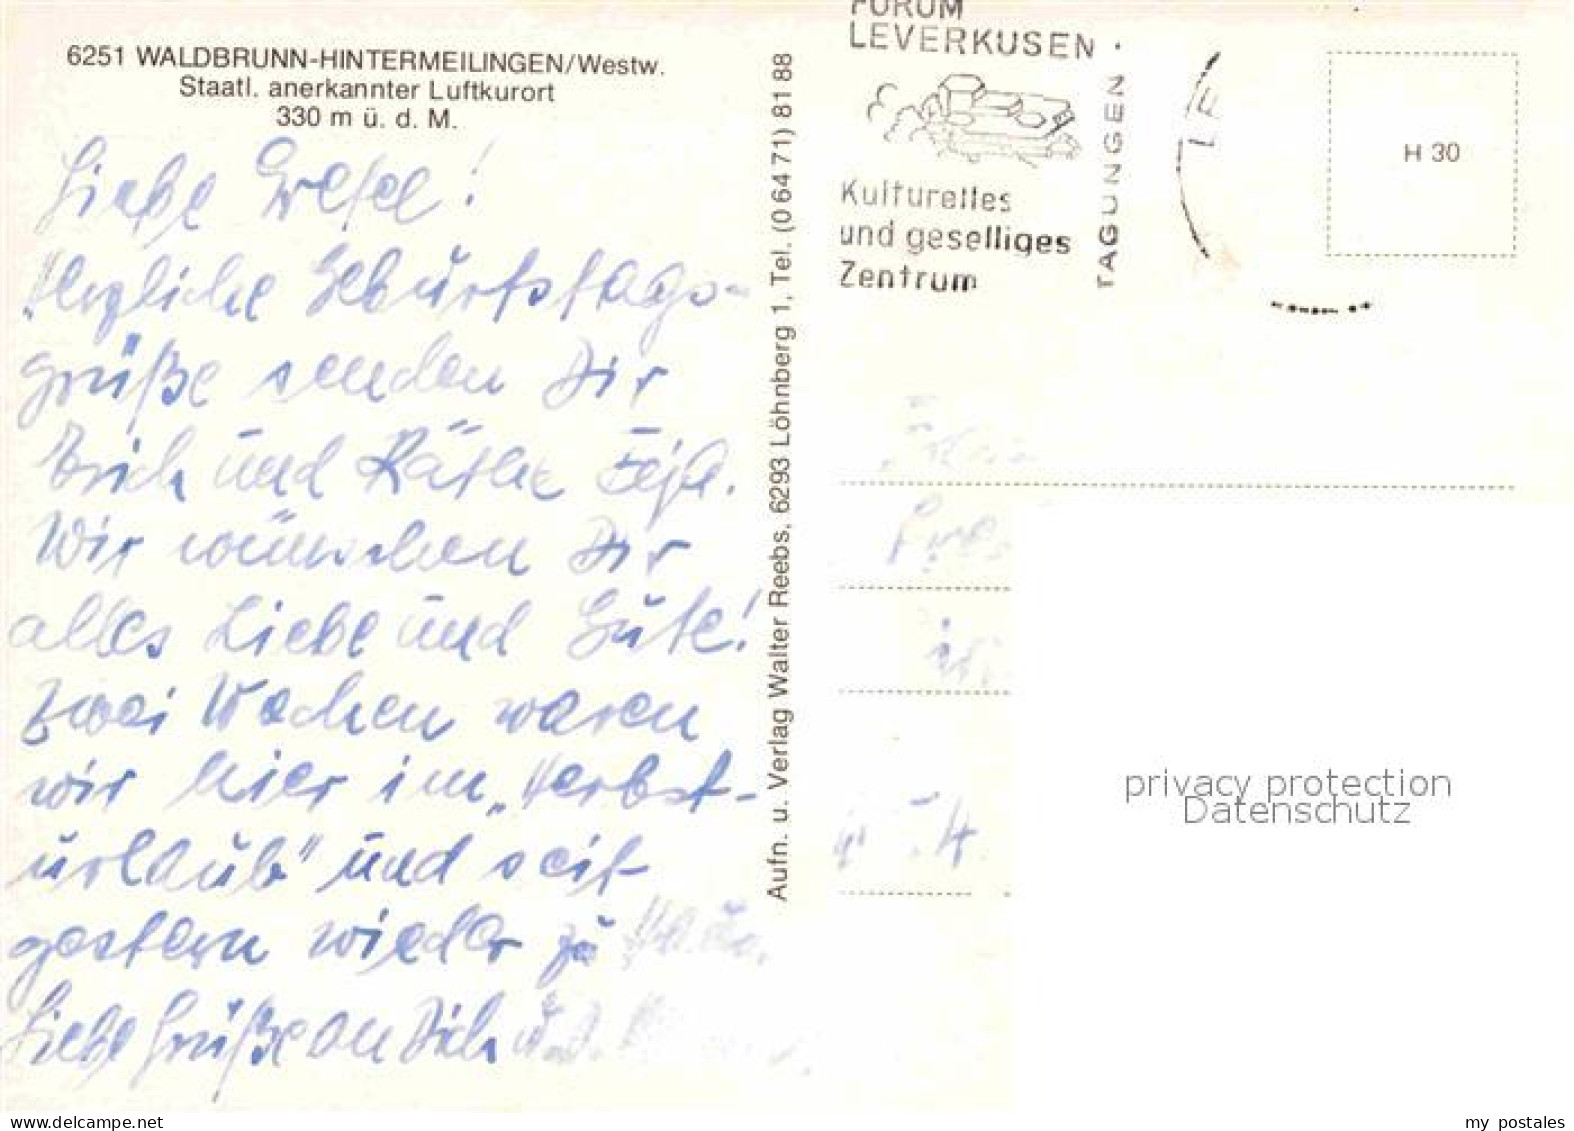 6251 WALDBRUNN-HINTERMEILINGEN/Westw.
Staatl. anerkannter Luftkurort
330 m ü. d. M.
Liebe !
Herzliche Geburtstags-
grüße senden Dir
Erich und Käthe
Wir wünschen Dir
alles Liebe und Gute!
Zwei Wochen waren
wir hier im „Herbst-
urlaub" und seit
gestern wieder zu
Liebe Grüße an Dich
Aufn. u. Verlag Walter Reebs, 6293 Löhnberg 1, Tel. (0 64 71) 81 88
FORUM
LEVERKUSEN ·
TAGUNGEN
Kulturelles
und geselliges
Zentrum
LE
H 30
privacy protection
Datenschutz
www.delcampe.net
my_postales